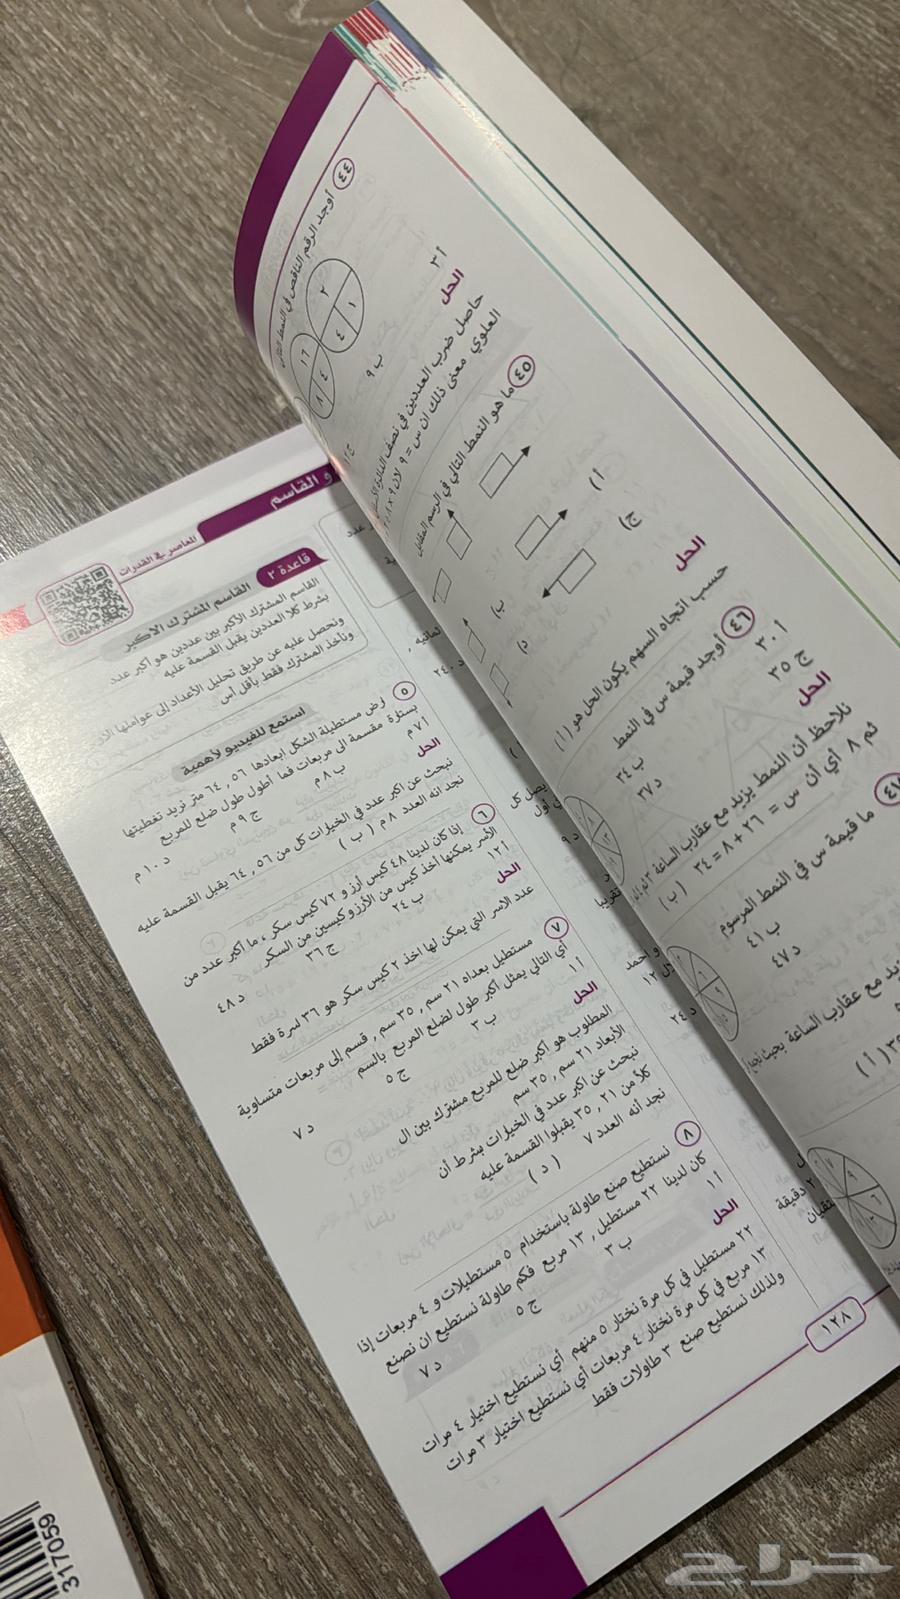 ٤٤ أوجد الرقم الناقص في النمط التالي
٢
١
٤
١٦
٤
٨
أ ٣
ب ٩
الحل
حاصل ضرب العددين في نصف الدائرة
العلوي معنى ذلك ان س = ٩ لان
٤٥ ما هو النمط التالي في الرسم المقابل
أ)
ب)
ج)
د)
الحل
حسب اتجاه السهم يكون الحل هو (أ)
٤٦ أوجد قيمة س في النمط
أ ٣٠
ب ٣٤
ج ٣٥
د ٣٧
الحل
نلاحظ أن النمط يزيد مع عقارب الساعة
ثم ٨ أي أن س = ٢٦ + ٨ = ٣٤ (ب)
٤٧ ما قيمة س في النمط المرسوم
ب ٤١
د ٤٧
يزيد مع عقارب الساعة بحيث
(أ)
و القاسم
المعاصر في القدرات
قاعدة ٢ القاسم المشترك الأكبر
القاسم المشترك الأكبر بين عددين هو أكبر عدد
بشرط كلا العددين يقبل القسمة عليه
ونحصل عليه عن طريق تحليل الأعداد إلى عواملها
ونأخذ المشترك فقط بأقل أس
استمع للفيديو لأهمية
٥ أرض مستطيلة الشكل ابعادها ٥٦ , ٦٤ متر نريد تغطيتها
بستارة مقسمة الى مربعات فما أطول طول ضلع للمربع
أ ٧ م ب ٨ م ج ٩ م د ١٠ م
الحل
نبحث عن اكبر عدد في الخيارات كل من ٥٦ , ٦٤ يقبل القسمة عليه
نجد انه العدد ٨ م (ب)
٦ إذا كان لدينا ٤٨ كيس أرز و ٧٢ كيس سكر ، ما أكبر عدد من
الأسر يمكنها أخذ كيس من الأرز و كيسين من السكر
أ ١٢ ب ٢٤ ج ٣٦ د ٤٨
الحل
عدد الاسر التي يمكن لها اخذ ٢ كيس سكر هو ٣٦ اسرة فقط
٧ مستطيل بعداه ٢١ سم , ٣٥ سم , قسم إلى مربعات متساوية
أي التالي يمثل أكبر طول لضلع المربع بالسم
أ ١ ب ٣ ج ٥ د ٧
الحل
المطلوب هو أكبر ضلع للمربع مشترك بين ال
الأبعاد ٢١ سم , ٣٥ سم
نبحث عن اكبر عدد في الخيارات بشرط أن
كلاً من ٢١ , ٣٥ يقبلوا القسمة عليه
نجد أنه العدد ٧ (د)
٨ نستطيع صنع طاولة باستخدام ٥ مستطيلات و ٤ مربعات إذا
كان لدينا ٢٢ مستطيل , ١٣ مربع فكم طاولة نستطيع ان نصنع
أ ١ ب ٣ ج ٥ د ٧
الحل
٢٢ مستطيل في كل مرة نختار ٥ منهم أي نستطيع اختيار ٤ مرات
١٣ مربع في كل مرة نختار ٤ مربعات أي نستطيع اختيار ٣ مرات
ولذلك نستطيع صنع ٣ طاولات فقط
١٢٨
عدد
د ٢٤٠
د ٩
تقريبا
و احمد
د ٢٤
٢ دقيقة
317059
حراج